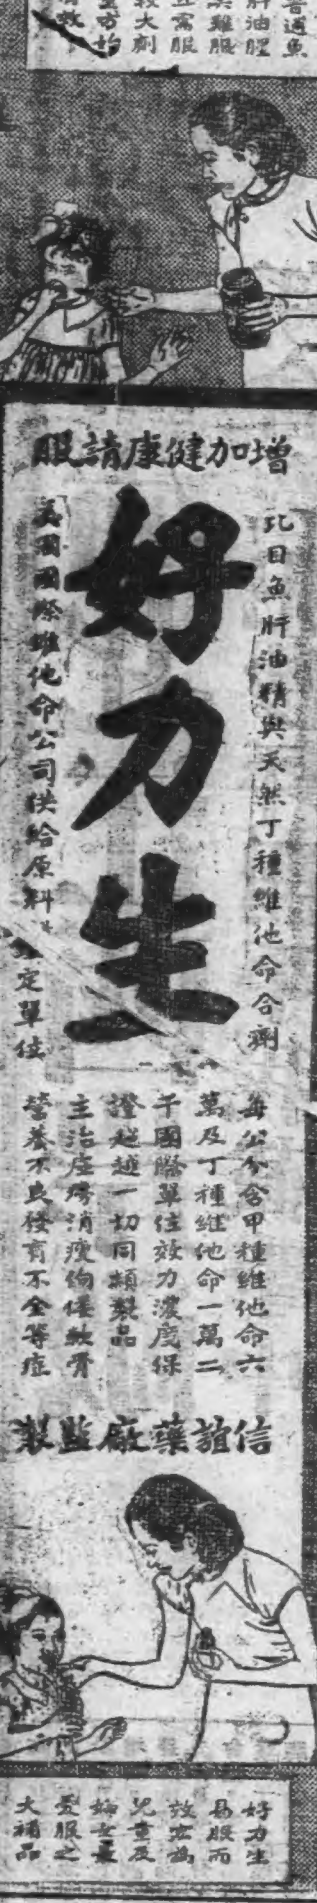 普通魚
肝油腥
臭難服
且需服
較大劑
量方始
有效
增加健康請服
比目魚肝油精與天然丁種維他命合劑
好力生
美國國際維他命公司供給原料定單位
每公分含甲種維他命六
萬及丁種維他命一萬二
千國際單位效力濃度保
證超越一切同類製品
主治虛癆消瘦佝僂軟骨
營養不良發育不全等症
信誼藥廠監製
好力生
易服而
效宏為
兒童及
婦女最
愛服之
大補品